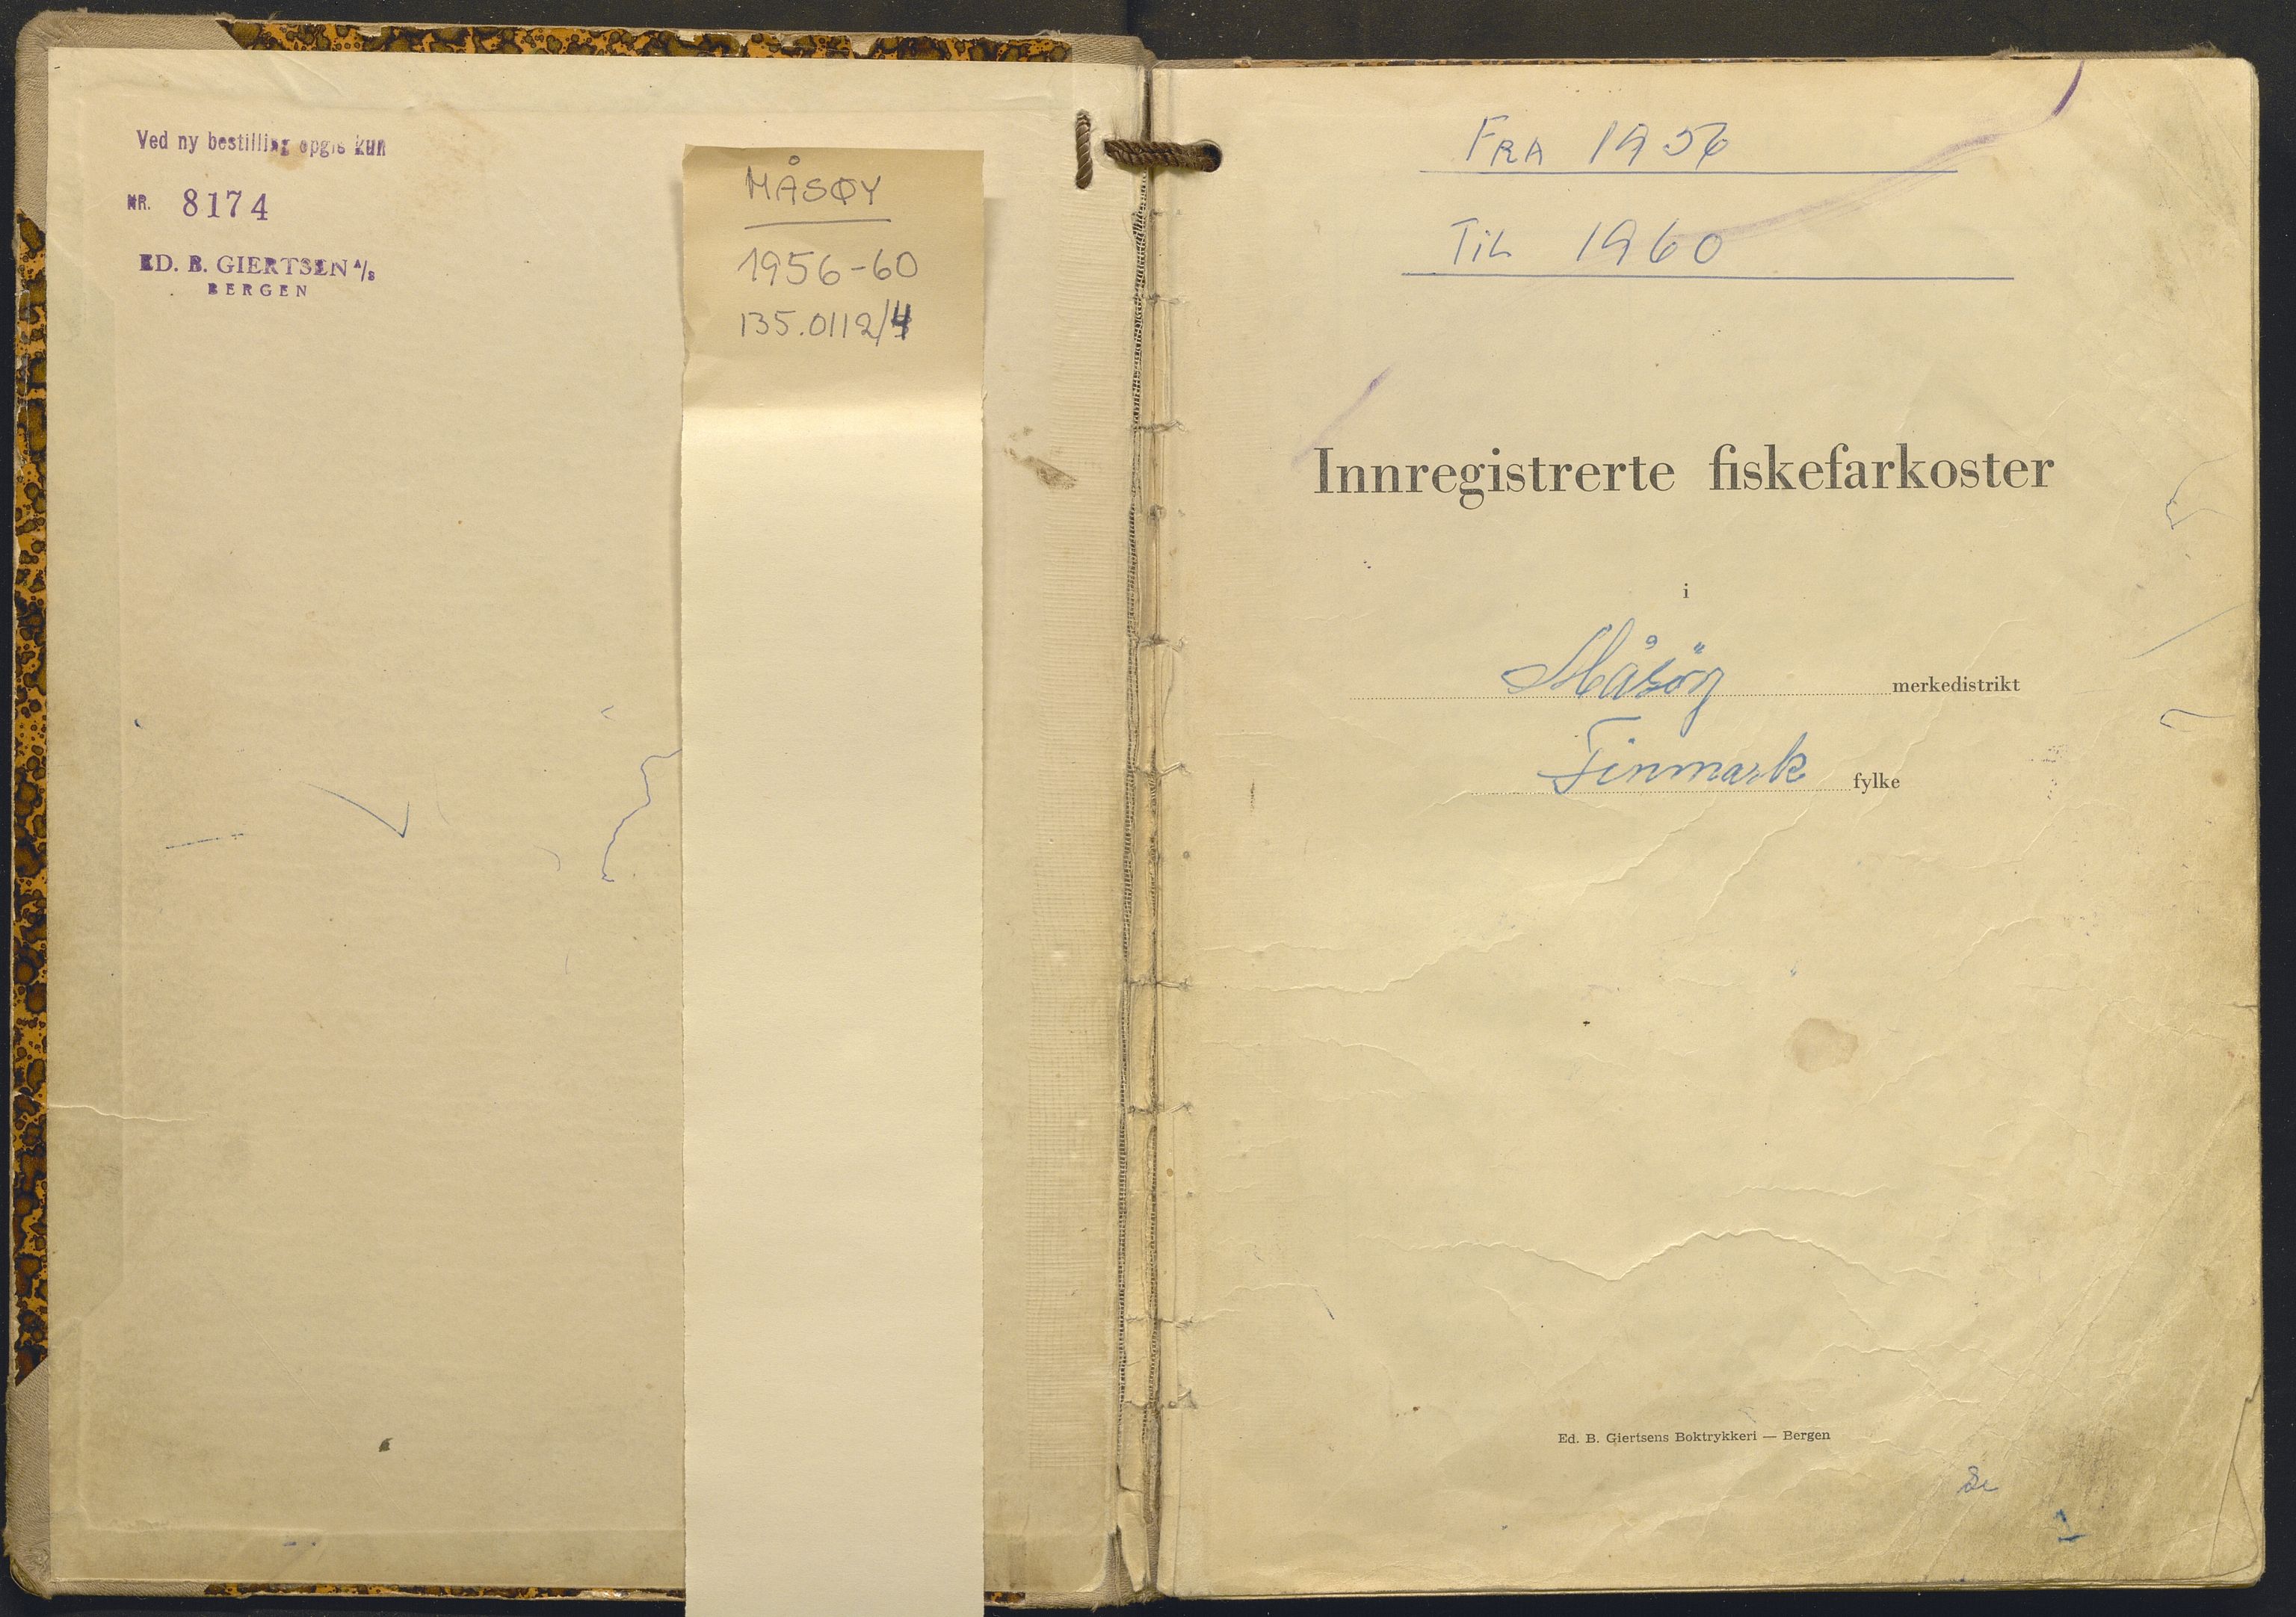 Ved ny bestilling opgis kun
NR. 8174
ED. B. GIERTSEN A/S
BERGEN
MÅSØY
1956-60
135.0112/4
FRA 1956
TiL 1960
Innregistrerte fiskefarkoster
i
Måsöy merkedistrikt
Finmark fylke
Ed. B. Giertsens Boktrykkeri — Bergen